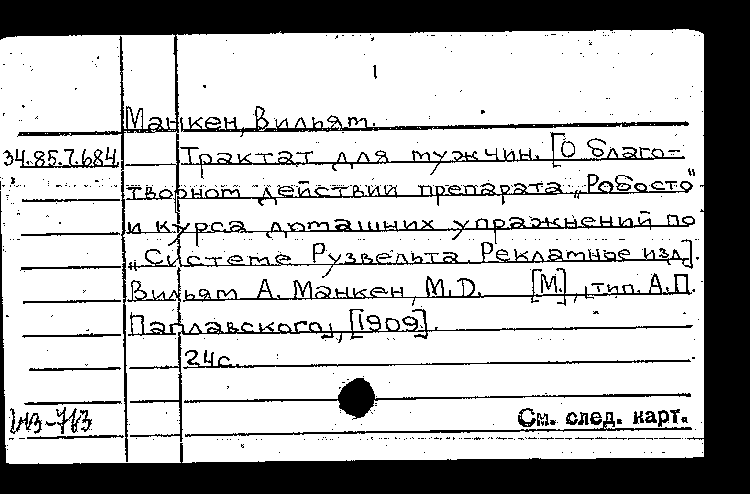 1
Манкен, Вильям.
34.85.7.684 Трактат для мужчин. [О благо-
творном действии препарата „Робосто"
и курса домашних упражнений по
„Системе Рузвельта. Рекламные изд].
Вильям А. Манкен, M.D. [М.], [тип. А.П.
Паплавского], [1909].
24с.
См. след. карт.